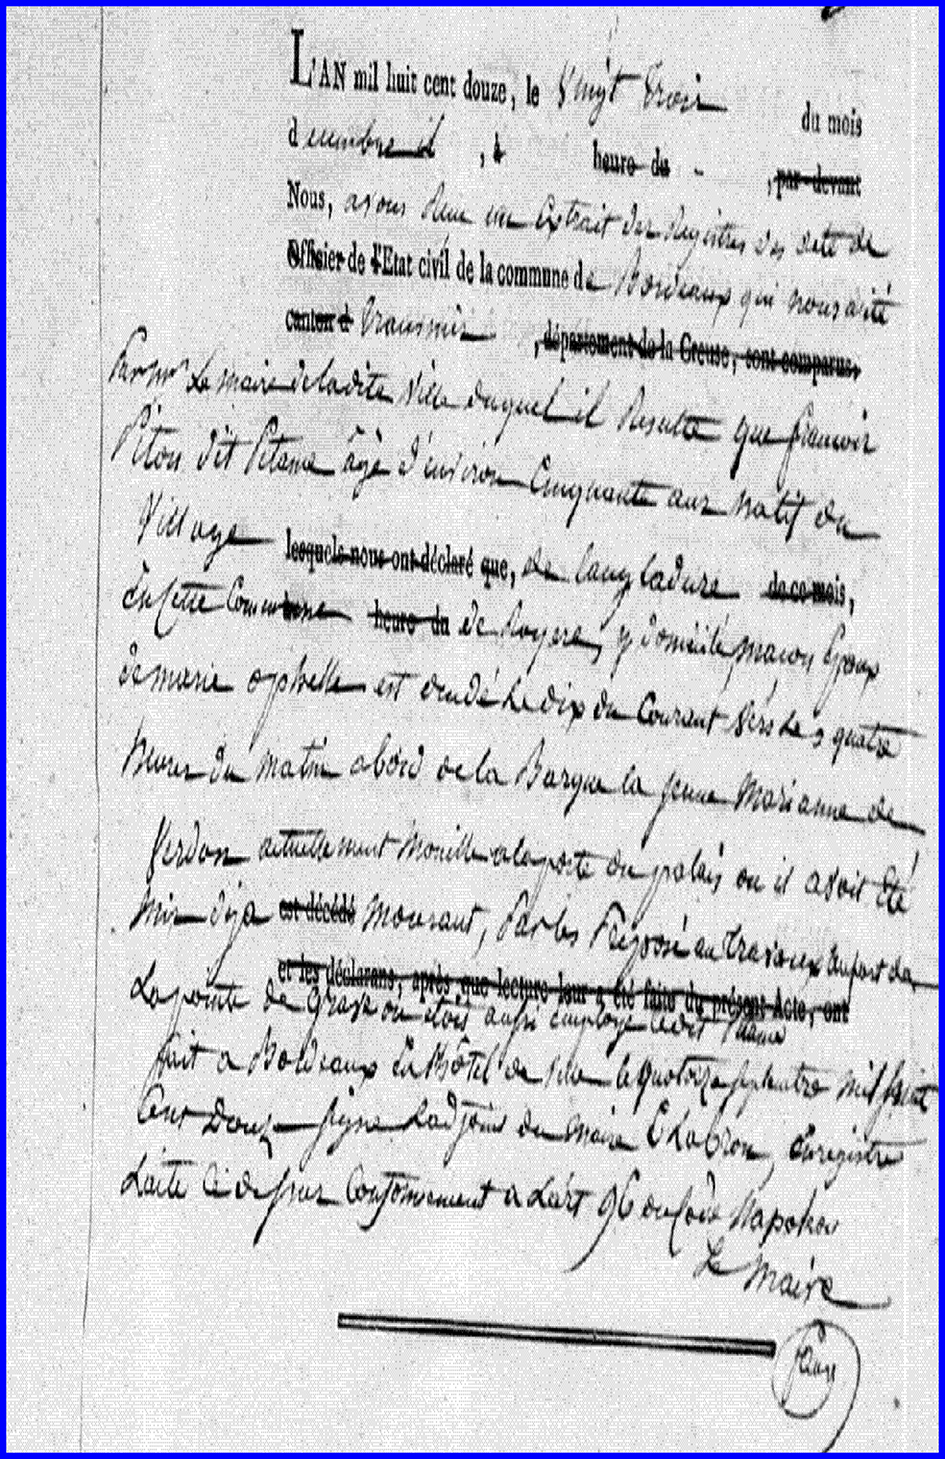 L'AN mil huit cent douze, le Vingt trois du mois
d , à heure du - , par-devant
Nous, avons Recu un Extrait des Registres des acte de
Officier de l'Etat civil de la commune de Bordeaux qui nous a été
canton d transmis , département de la Creuse, sont comparus,
Par mr Le maire de la dite Ville duquel il Resulte que francois
Piton dit Pitance âgé d'environ Cinquante ans natif du
Village lesquels nous ont déclaré que, de Langladure de ce mois,
En Cette Commune heure du de Royere, y domicilié macon Epoux
de marie est décédé Le dix du Courant Vers Les quatre
heures du matin abord de la Barque la jeune Marianne de
Verdon actuellement Mouillé a la porte du palais ou il avoit été
mis deja est décédé Mourant, Par les au travaux du fort de
et les déclarans, après que lecture leur a été faite du présent Acte, ont
La pointe de Grave ou étoit aussi employé ledit
fait a Bordeaux En l'hôtel de ville le quatorze septembre mil huit
Cent Douze signé L'adjoint du maire Labroue, Enregistre
L'acte Ci dessus Conformement a L'art 96 du Code Napoleon
Le Maire